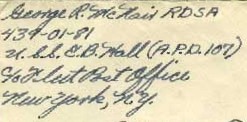 George R. McNair RDSA
439-01-81
U.S.S. E.B. Hall (A.P.D. 107)
c/o Fleet Post Office
New York, N.Y.